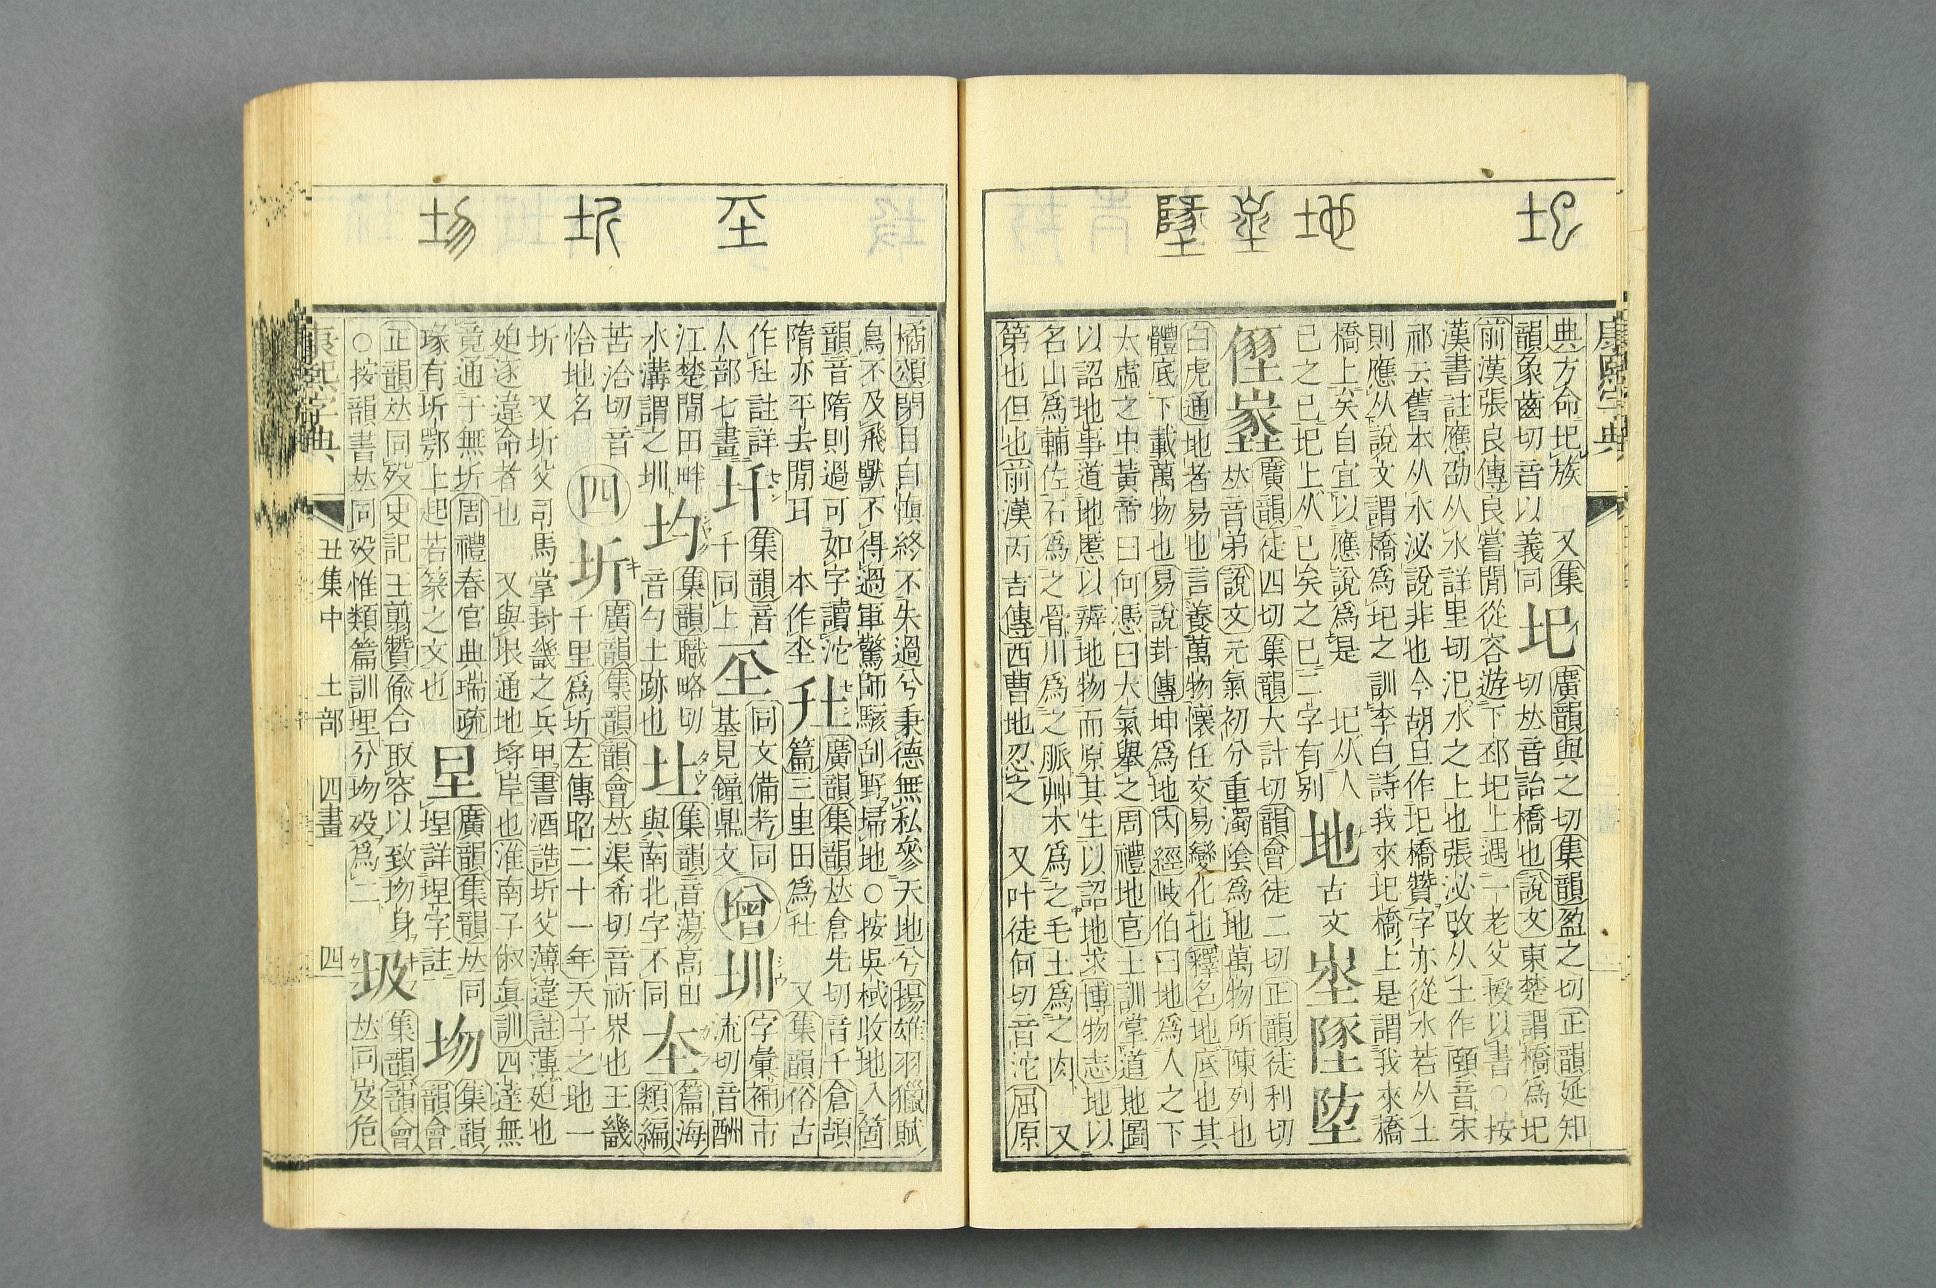 康熙字典
圯 地 墬
典方命圯族 又集
韻象齒切音以義同
圯
廣韻與之切集韻盈之切正韻延知
切𠀤音詒橋也說文東楚謂橋爲圯
前漢張良傳良嘗閒從容遊下邳圯上遇一老父授以書○按
漢書註應劭从水詳里切汜水之上也張泌改从土作頤音宋
祁云舊本从水泌說非也今胡旦作圯橋贊字亦從水若从土
則應从說文謂橋爲圯之訓李白詩我來圯橋上是謂我來橋
橋上矣自宜以應說爲是 圮从人
己之己圯上从已矣之巳二字有别
地
古文
坔墬埅
𠀤廣韻徒四切集韻大計切韻會徒二切正韻徒利切
𠀤音弟說文元氣初分重濁陰爲地萬物所陳列也
白虎通地者易也言養萬物懷任交易變化也釋名地底也其
體底下載萬物也易說卦傳坤爲地內經岐伯曰地爲人之下
大虛之中黃帝曰何憑曰大氣舉之周禮地官土訓掌道地圖
以詔地事道地慝以辨地物而原其生以詔地求博物志地以
名山爲輔佐石爲之骨川爲之脈艸木爲之毛土爲之肉 又
第也但也前漢丙吉傳西曹地忍之 又叶徒何切音沱屈原
坕 圻 㘬
橘頌閉目自愼終不失過兮秉德無私參天地兮揚雄羽獵賦
鳥不及飛獸不得過軍驚師駭刮野掃地○按吳棫收地入箇
韻音隋則過可如字讀沱
隋亦平去閒耳 本作坔
圱
廣韻集韻𠀤倉先切音千倉頡
篇三里田爲圱 又集韻俗古
作圱註詳
人部七畫
圲
集韻音
千同上
坕
同文備考同
基見鐘鼎文
增
圳
字彙補市
流切音酬
江楚閒田畔
水溝謂之圳
圴
集韻職略切
音勺土跡也
𡉏
集韻音蕩高田
與南北字不同
夳
篇海
類編
苦洽切音
恰地名
四
圻
廣韻集韻韻會𠀤渠希切音祈界也王畿
千里爲圻左傳昭二十一年天子之地一
圻 又圻父司馬掌封畿之兵甲書酒誥圻父薄違註薄廹也
廹逐違命者也 又與垠通地埓岸也淮南子俶眞訓四達無
竟通于無圻周禮春官典瑞疏
瑑有圻鄂上起若篆之文也
圼
廣韻集韻𠀤同
埕詳埕字註
㘬
集韻
韻會
正韻𠀤同歿史記王翦贊偸合取容以致㘬身
○按韻書𠀤同歿惟類篇訓埋分㘬歿爲二
圾
集韻韻會
𠀤同岌危
康熙字典
丑集中 土部 四畫 四